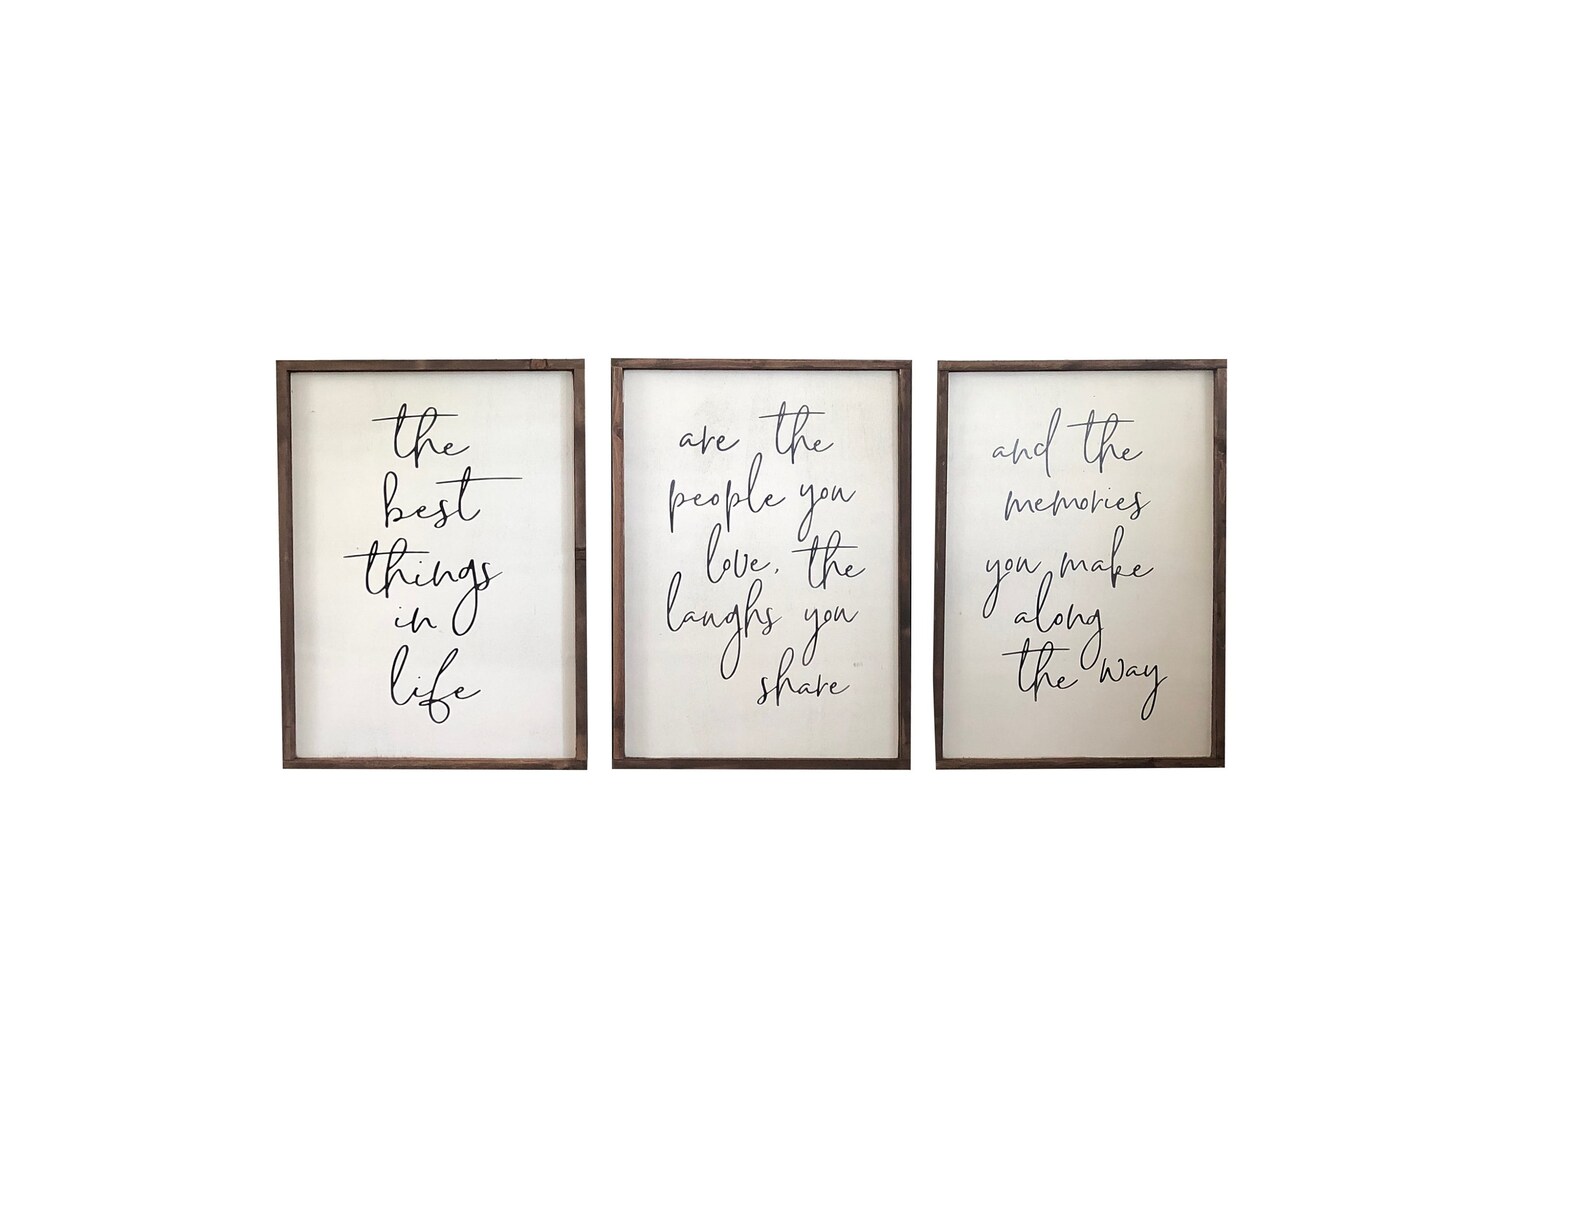 the
best
things
in
life
are the
people you
love, the
laughs you
share
and the
memories
you make
along
the way